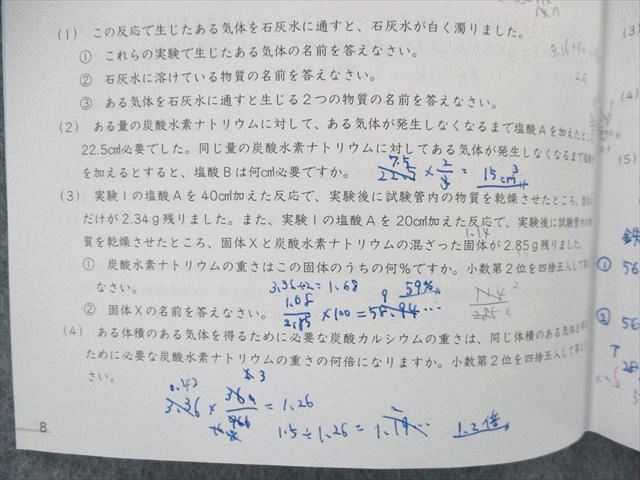 (1) この反応で生じたある気体を石灰水に通すと、石灰水が白く濁りました。
① これらの実験で生じたある気体の名前を答えなさい。
② 石灰水に溶けている物質の名前を答えなさい。
③ ある気体を石灰水に通すと生じる2つの物質の名前を答えなさい。
(2) ある量の炭酸水素ナトリウムに対して、ある気体が発生しなくなるまで塩酸Aを加えたところ
22.5cm³必要でした。同じ量の炭酸水素ナトリウムに対してある気体が発生しなくなるまで
を加えるとすると、塩酸Bは何cm³必要ですか。
7.5
22.5 × 2/3 = 15cm³
(3) 実験1の塩酸Aを40cm³加えた反応で、実験後に試験管内の物質を乾燥させたところ、
だけが2.34g残りました。また、実験1の塩酸Aを20cm³加えた反応で、実験後に試験管内の
1.14
質を乾燥させたところ、固体Xと炭酸水素ナトリウムの混ざった固体が2.85g残りました。
① 炭酸水素ナトリウムの重さはこの固体のうちの何%ですか。小数第2位を四捨五入して
なさい。
3.36÷2=1.68
59%
② 固体Xの名前を答えなさい。
1.68/2.85 ×100=58.94…
(4) ある体積のある気体を得るために必要な炭酸カルシウムの重さは、同じ体積のある気体を
ために必要な炭酸水素ナトリウムの重さの何倍になりますか。小数第2位を四捨五入して
さい。
0.42
3.36 × 360/ = 1.26
1.5÷1.26=1.19…
1.2倍
8
(3)
(4)
(5)
鉄
① 56
② 56